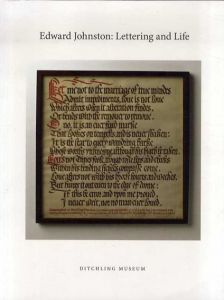 Edward Johnston: Lettering and Life
Let me not to the marriage of true mindes
Admit impediments, love is not love
Which alters when it alteration findes,
Or bends with the remover to remove.
O no, it is an ever fixed marke
That lookes on tempests and is never shaken;
It is the star to every wandring barke,
Whose worths unknowne, although his higth be taken.
Lov's not Times foole, though rosie lips and cheeks
Within his bending sickles compasse come,
Love alters not with his breefe houres and weekes,
But beares it out even to the edge of doome:
If this be error and upon me proved,
I never writ, nor no man ever loved.
DITCHLING MUSEUM